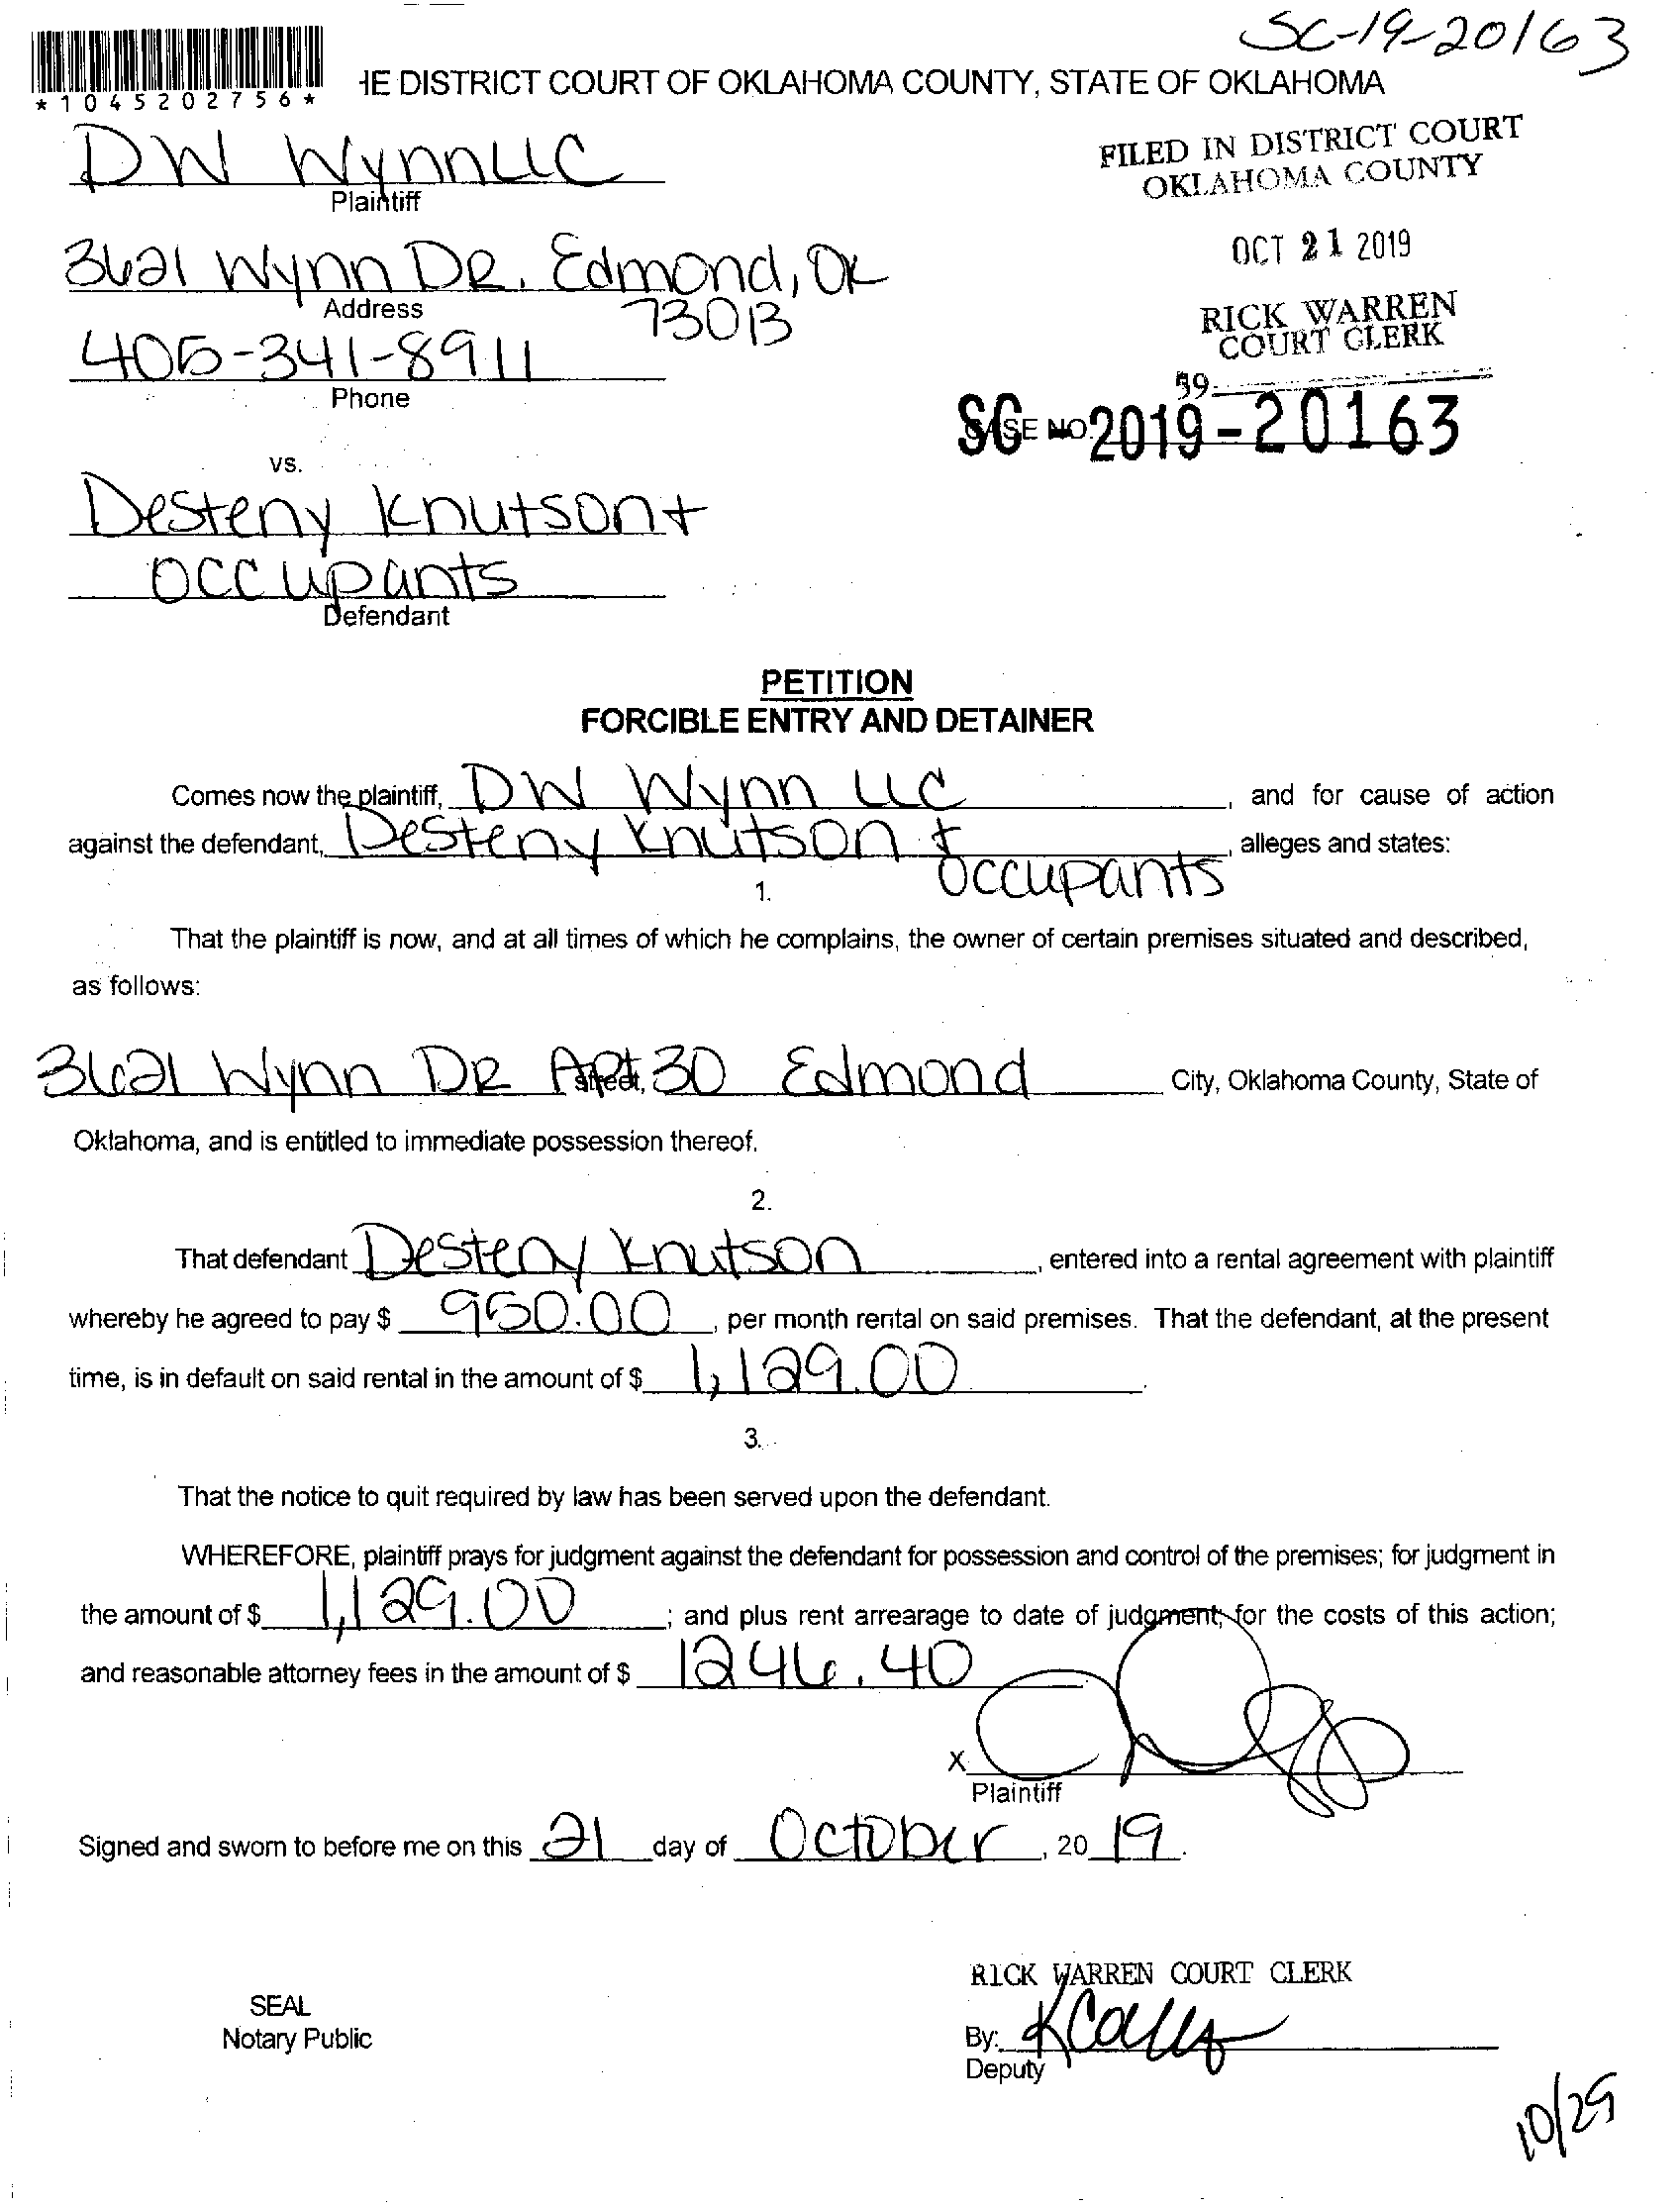 SC-19-20163
*1045202756*
HE DISTRICT COURT OF OKLAHOMA COUNTY, STATE OF OKLAHOMA
DW Wynn LLC
Plaintiff
FILED IN DISTRICT COURT
OKLAHOMA COUNTY
3621 Wynn DR. Edmond, OK
73013
Address
OCT 21 2019
RICK WARREN
COURT CLERK
405-341-8911
Phone
39
SC CASE NO. 2019-20163
vs.
Desteny Knutson +
occupants
Defendant
PETITION
FORCIBLE ENTRY AND DETAINER
Comes now the plaintiff, DW Wynn LLC, and for cause of action
against the defendant, Desteny Knutson + occupants, alleges and states:
1.
That the plaintiff is now, and at all times of which he complains, the owner of certain premises situated and described,
as follows:
3621 Wynn DR Apt 30 Edmond City, Oklahoma County, State of
street,
Oklahoma, and is entitled to immediate possession thereof.
2.
That defendant Desteny Knutson, entered into a rental agreement with plaintiff
whereby he agreed to pay $ 950.00, per month rental on said premises. That the defendant, at the present
time, is in default on said rental in the amount of $ 1,129.00.
3.
That the notice to quit required by law has been served upon the defendant.
WHEREFORE, plaintiff prays for judgment against the defendant for possession and control of the premises; for judgment in
the amount of $ 1,129.00; and plus rent arrearage to date of judgment; for the costs of this action;
and reasonable attorney fees in the amount of $ 1246.40
X
Plaintiff
Signed and sworn to before me on this 21 day of October, 20 19.
RICK WARREN COURT CLERK
SEAL
Notary Public
By:
Deputy
10/29